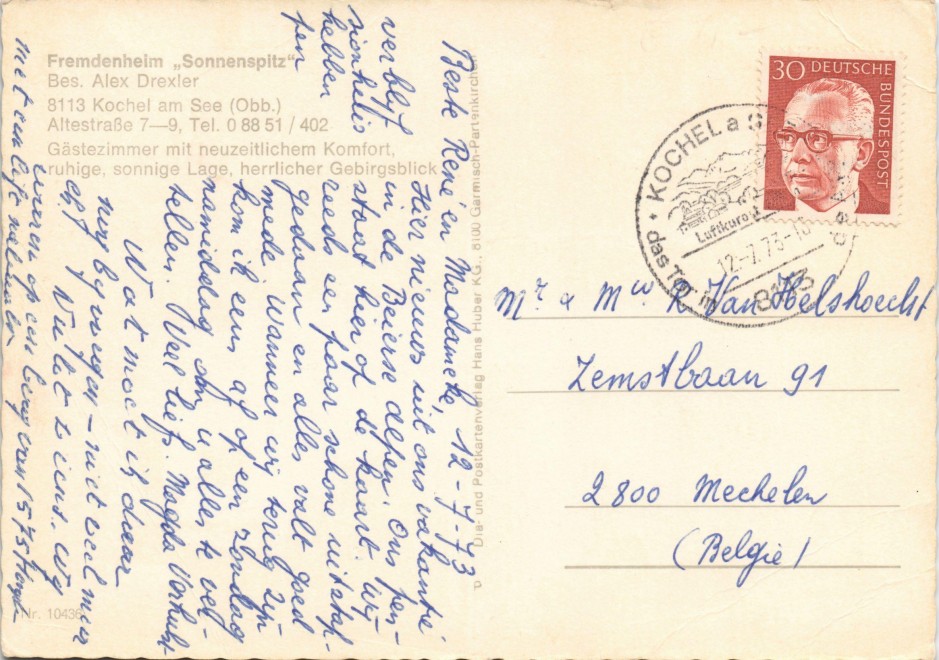 Fremdenheim „Sonnenspitz"
Bes. Alex Drexler
8113 Kochel am See (Obb.)
Altestraße 7—9, Tel. 0 88 51 / 402
Gästezimmer mit neuzeitlichem Komfort,
ruhige, sonnige Lage, herrlicher Gebirgsblick
Beste René en Madameke, 12-7-73
Hier nieuws uit ons vakantie
verblijf in de Beierse alpen. Ons pen-
sionhuis staat hier op de kaart. Wij
hebben reeds een paar schone uitstap-
pen gedaan en alles valt goed
mede. Wanneer wij terug zijn
kom ik eens af op een zondag
namiddag om u alles te vel-
tellen. Veel liefs. Magda Verhulst
Wat moet ik daar
nog bij voegen – niet veel meer
Nu tot ziens. Wij
op een berg van 1575
Nr. 10436
Dia- und Postkartenverlag Hans Huber KG., 8100 Garmisch-Partenkirchen
30 DEUTSCHE BUNDESPOST
KOCHEL a S
Luftkurort
das Tor in
12.-7.73-16
8113
Mr & Mw R Van Helshoecht
Zemstbaan 91
2800 Mechelen
(Belgie)